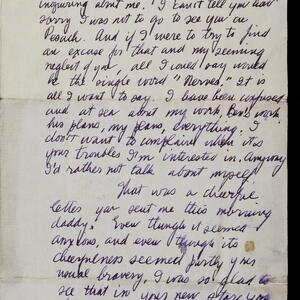 inquiring about me. I can't tell you how
sorry I was not to go to see you on
Pesach. And if I were to try to find
an excuse for that and my seeming
neglect of you, all I could say would
be the single word "Nerves." It is
all I want to say. I have been confused
and at sea about my work, work
his plans, my plans, everything. I
don't want to complain when it's
your troubles I'm interested in. Anyway
I'd rather not talk about myself
That was a cheerful
letter you sent me this morning
daddy. Even though it seemed
anxious, and even though its
cheeriness seemed partly your
usual bravery. I was so glad to
see that in your new place you